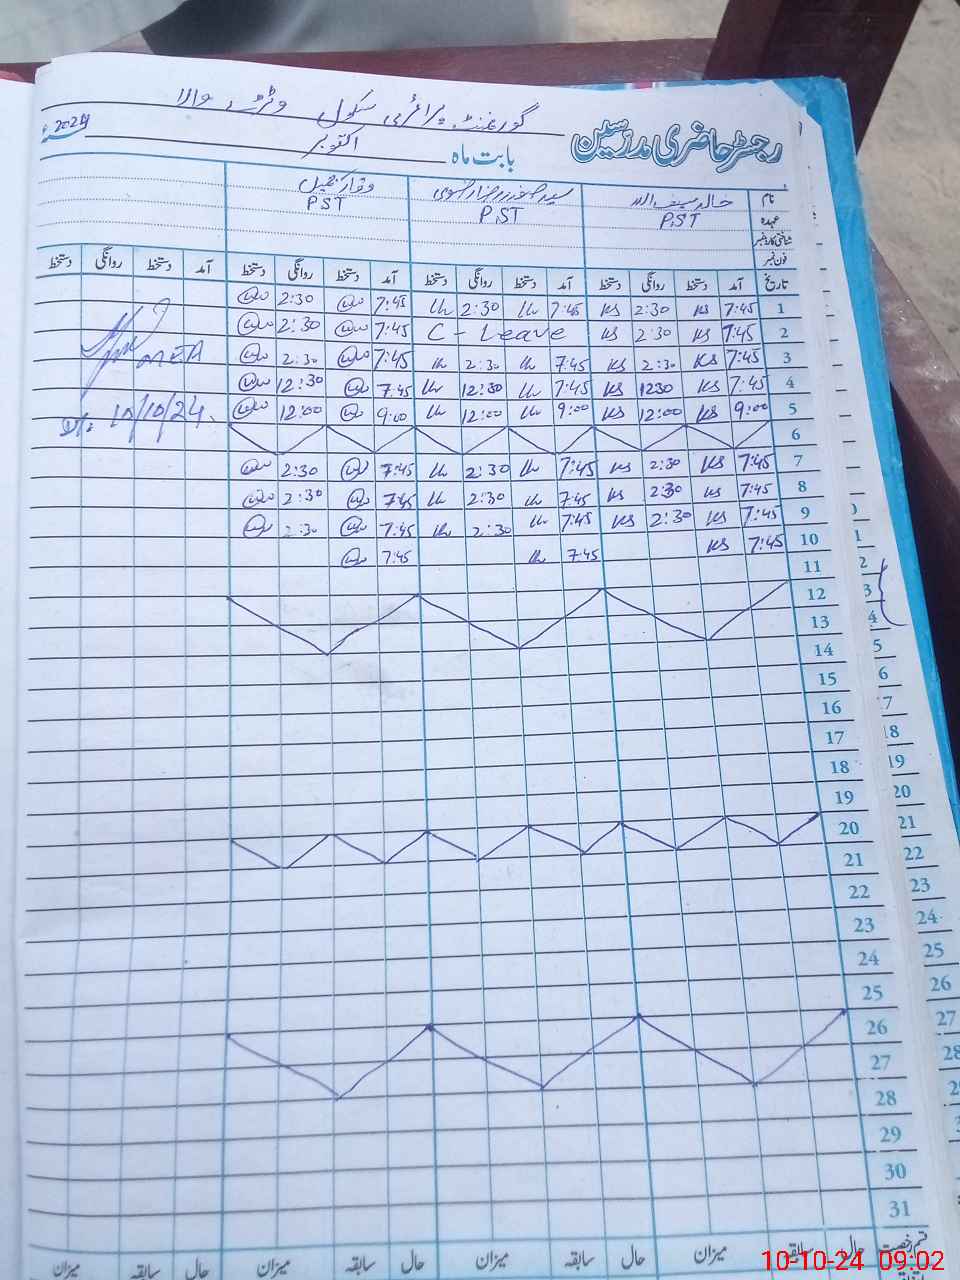 رجسٹر حاضری مدرسین گورنمنٹ پرائمری سکول
بابت ماہ اکتوبر 2024
نام خالد سیف اللہ سید
عہدہ PST PST PST
شناختی کارڈ نمبر
فون نمبر
تاریخ آمد دستخط روانگی دستخط آمد دستخط روانگی دستخط آمد دستخط روانگی دستخط آمد دستخط روانگی دستخط
1 7:45 KS 2:30 KS 7:45 2:30 7:45 2:30
2 7:45 KS 2:30 KS C - Leave 7:45 2:30
3 7:45 KS 2:30 KS 7:45 2:30 7:45 2:30
4 7:45 KS 1230 KS 7:45 12:30 7:45 12:30
5 9:00 KS 12:00 KS 9:00 12:00 9:00 12:00
6
7 7:45 KS 2:30 KS 7:45 2:30 7:45 2:30
8 7:45 KS 2:30 KS 7:45 2:30 7:45 2:30
9 7:45 KS 2:30 KS 7:45 2:30 7:45 2:30
10 7:45 KS 7:45 7:45
11
12
13
14
15
16
17
18
19
20
21
22
23
24
25
26
27
28
29
30
31
قسم رخصت حال سابقہ میزان حال سابقہ میزان حال سابقہ میزان حال سابقہ میزان
MEA
Dt. 10/10/24.
10-10-24 09:02